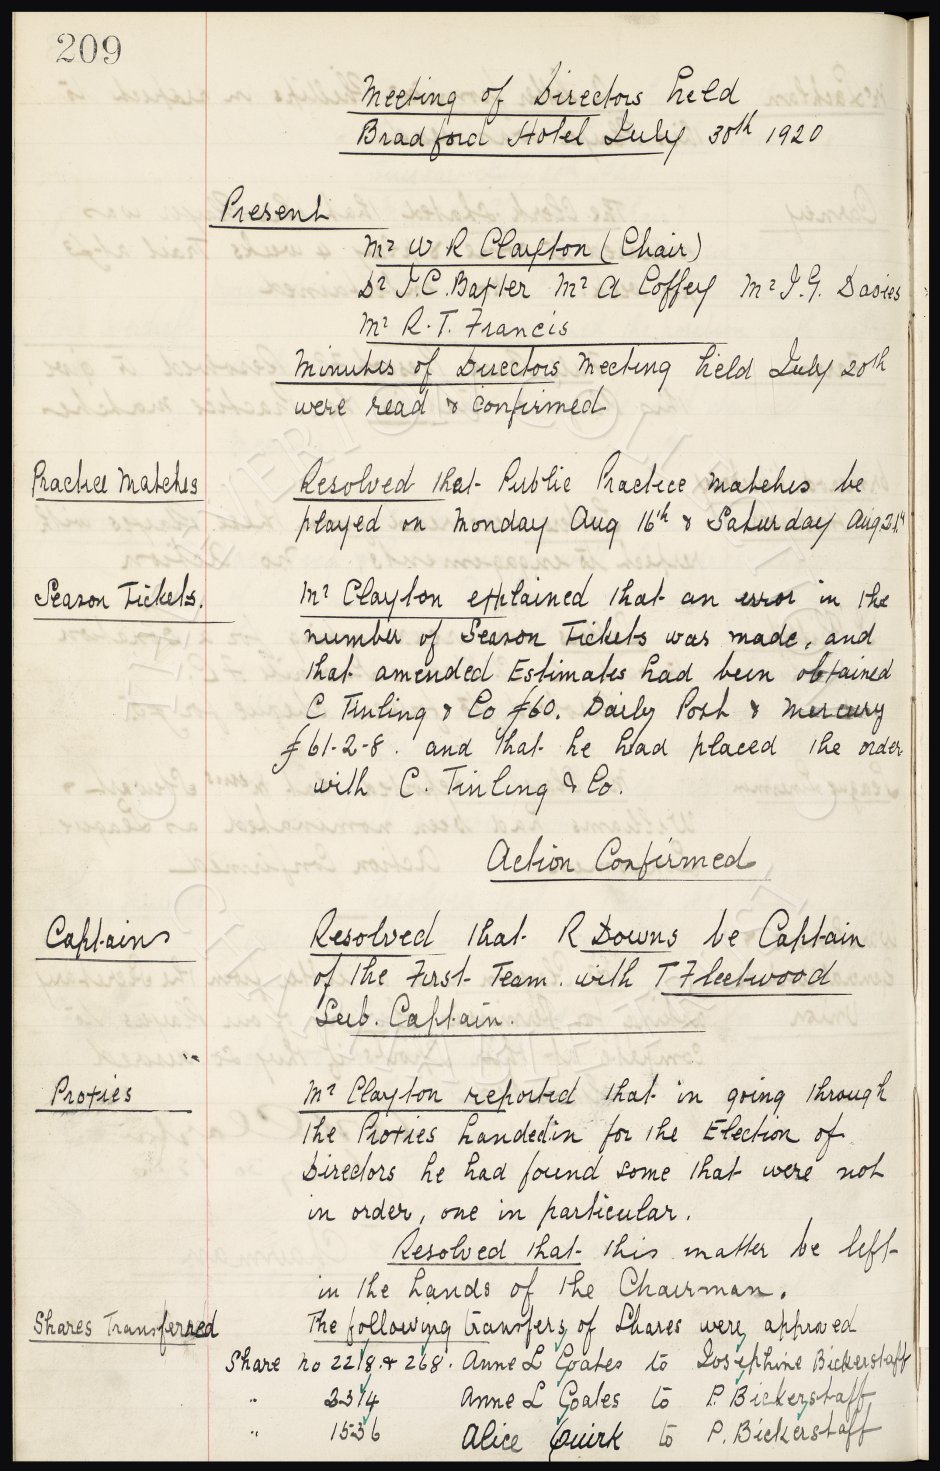 209
Meeting of Directors held
Bradford Hotel July 30th 1920
Present
Mr W R Clayton (Chair)
Dr J C. Baxter Mr A Coffey Mr J. G. Davies
Mr R. T. Francis
Minutes of Directors Meeting held July 20th
were read & confirmed
Practice Matches Resolved that Public Practice Matches be
played on Monday Aug 16th & Saturday Aug 21st
Season Tickets. Mr Clayton explained that an error in the
number of Season Tickets was made, and
that amended Estimates had been obtained
C Tinling & Co £60. Daily Post & Mercury
£61-2-8. and that he had placed the order
with C. Tinling & Co.
Action Confirmed
Captain Resolved that R Downs be Captain
of the First Team. with T Fleetwood
Sub. Captain.
Proxies Mr Clayton reported that in going through
the Proxies handed in for the Election of
Directors he had found some that were not
in order, one in particular.
Resolved that this matter be left
in the hands of the Chairman.
Shares Transferred The following transfers of Shares were approved
Share no 2218 & 268. Anne L Coates to Josephine Bickerstaff
" 2314 Anne L Coates to P. Bickerstaff
" 1536 Alice Quirk to P. Bickerstaff